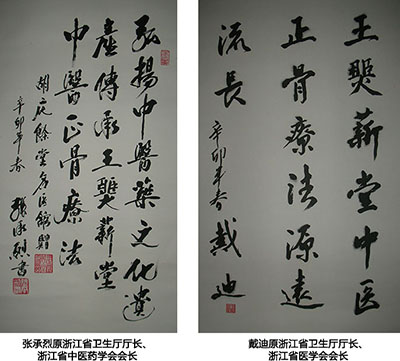 弘揚中醫藥文化遺
產傳承王薪堂
中醫正骨療法
胡庆餘堂名医館贈
辛卯年春 張承烈書
王薪堂中医
正骨療法源遠
流長
辛卯年春 戴迪
张承烈原浙江省卫生厅厅长、
浙江省中医药学会会长
戴迪原浙江省卫生厅厅长、
浙江省医学会会长